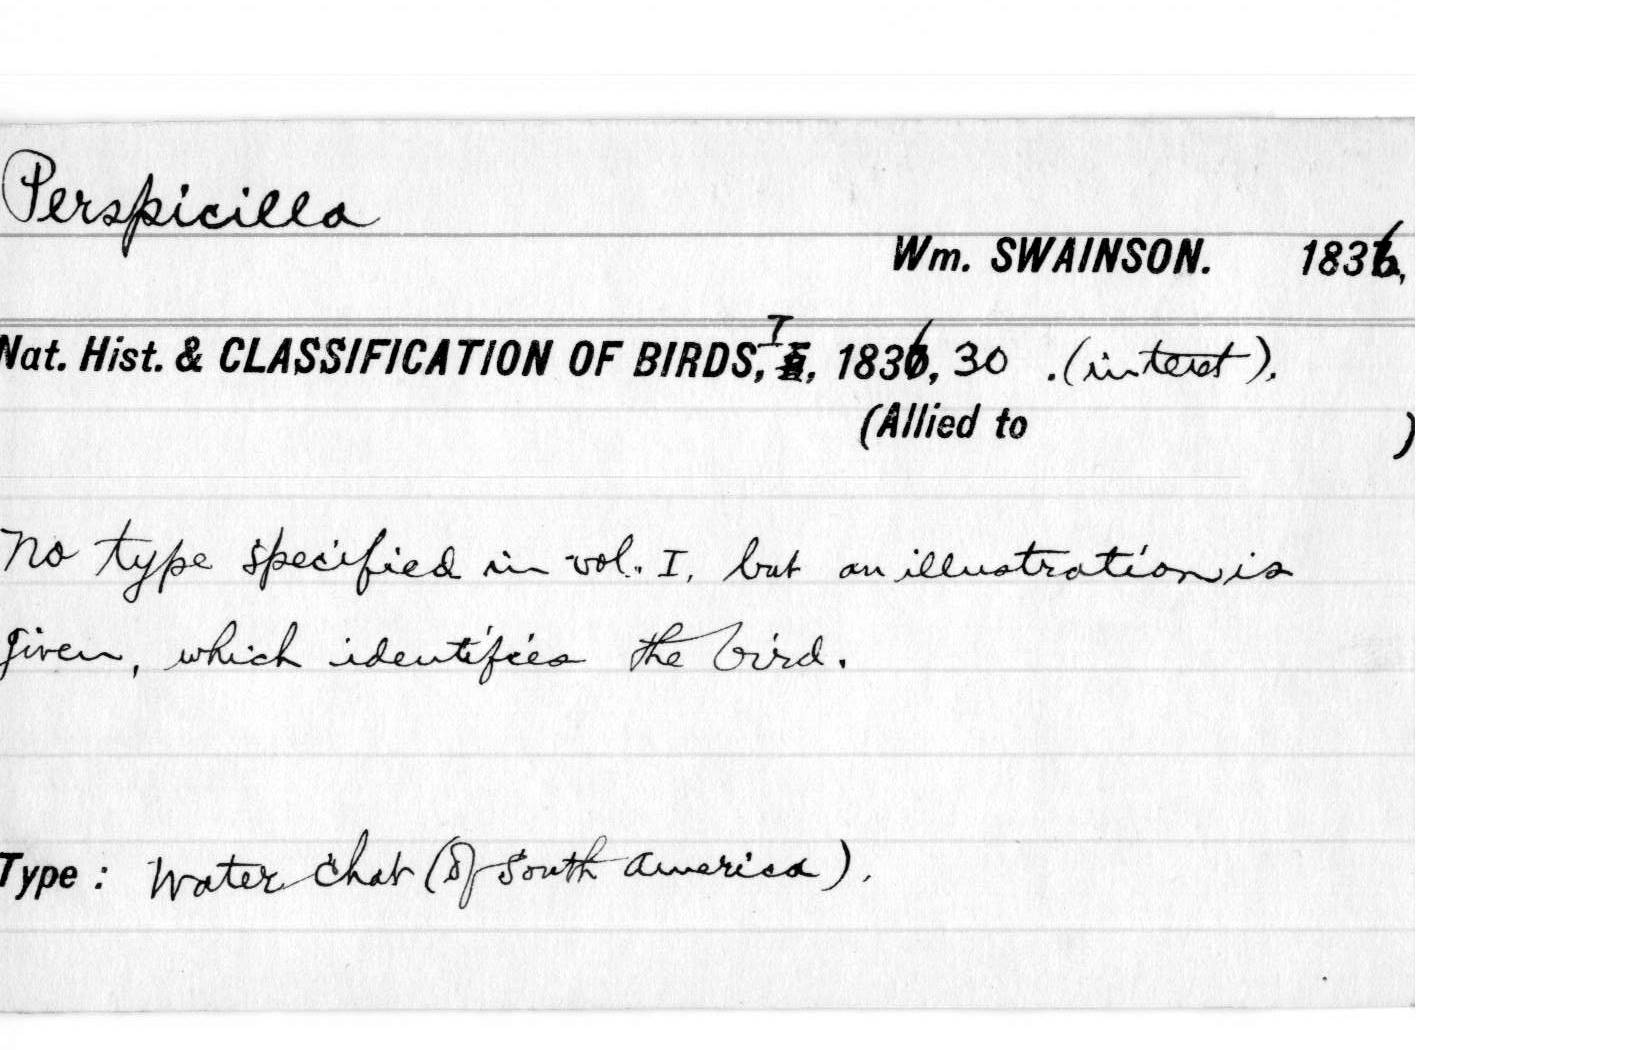 Perspicilla
Wm. SWAINSON. 1836,
Nat. Hist. & CLASSIFICATION OF BIRDS, I, 1836, 30 . (in text).
(Allied to )
No type specified in vol. I, but an illustration is
given, which identifies the bird.
Type : Water chat (of South America).